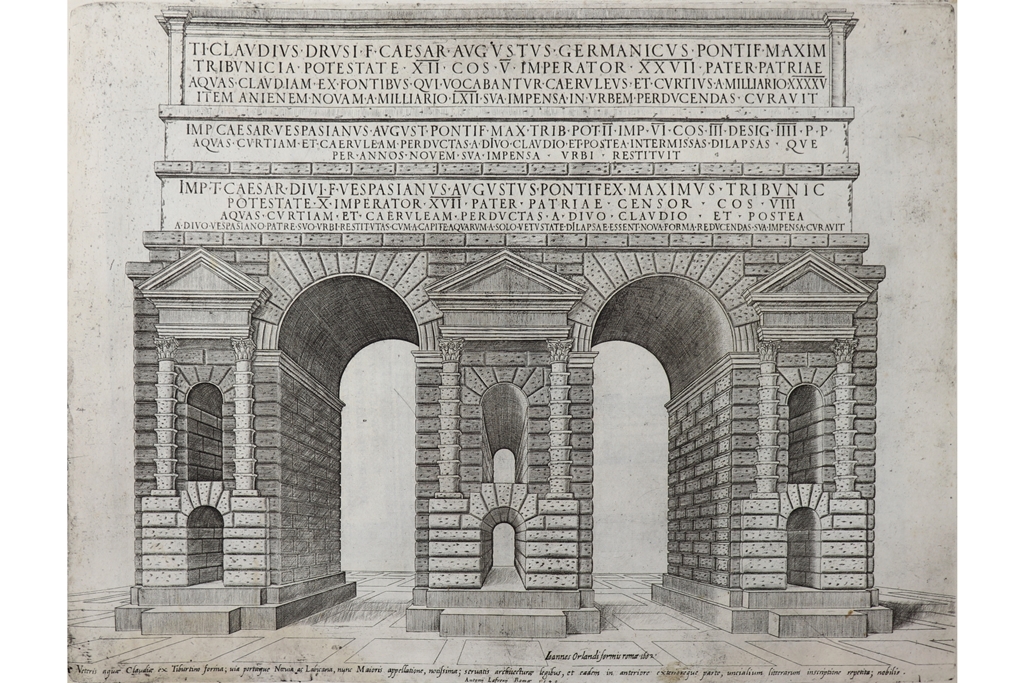 TI·CLAVDIVS·DRVSI·F·CAESAR·AVGVSTVS·GERMANICVS·PONTIF·MAXIM
TRIBVNICIA·POTESTATE·XII·COS·V·IMPERATOR·XXVII·PATER·PATRIAE
AQVAS·CLAVDIAM·EX·FONTIBVS·QVI·VOCABANTVR·CAERVLEVS·ET·CVRTIVS·A·MILLIARIO·XXXXV
ITEM·ANIENEM·NOVAM·A·MILLIARIO·LXII·SVA·IMPENSA·IN·VRBEM·PERDVCENDAS·CVRAVIT
IMP·CAESAR·VESPASIANVS·AVGVST·PONTIF·MAX·TRIB·POT·II·IMP·VI·COS·III·DESIG·IIII·P·P
AQVAS·CVRTIAM·ET·CAERVLEAM·PERDVCTAS·A·DIVO·CLAVDIO·ET·POSTEA·INTERMISSAS·DILAPSAS·QVE
PER·ANNOS·NOVEM·SVA·IMPENSA·VRBI·RESTITVIT
IMP·T·CAESAR·DIVI·F·VESPASIANVS·AVGVSTVS·PONTIFEX·MAXIMVS·TRIBVNIC
POTESTATE·X·IMPERATOR·XVII·PATER·PATRIAE·CENSOR·COS·VIII
AQVAS·CVRTIAM·ET·CAERVLEAM·PERDVCTAS·A·DIVO·CLAVDIO·ET·POSTEA
A·DIVO·VESPASIANO·PATRE·SVO·VRBI·RESTITVTAS·CVM·A·CAPITE·AQVARVM·A·SOLO·VETVSTATE·DILAPSAE·ESSENT·NOVA·FORMA·REDVCENDAS·SVA·IMPENSA·CVRAVIT
Ioannes Orlandi formis romae 1602
Veteris aquae Claudiae ex Tiburtino forma; via portaque Naevia ac Labicana, nunc Maioris appellatione, notissima; servatis architecturae legibus, et eadem in anteriore exterioreque parte, uncialium litterarum inscriptione repetita; nobilis.
Antonij Lafrerij Romae